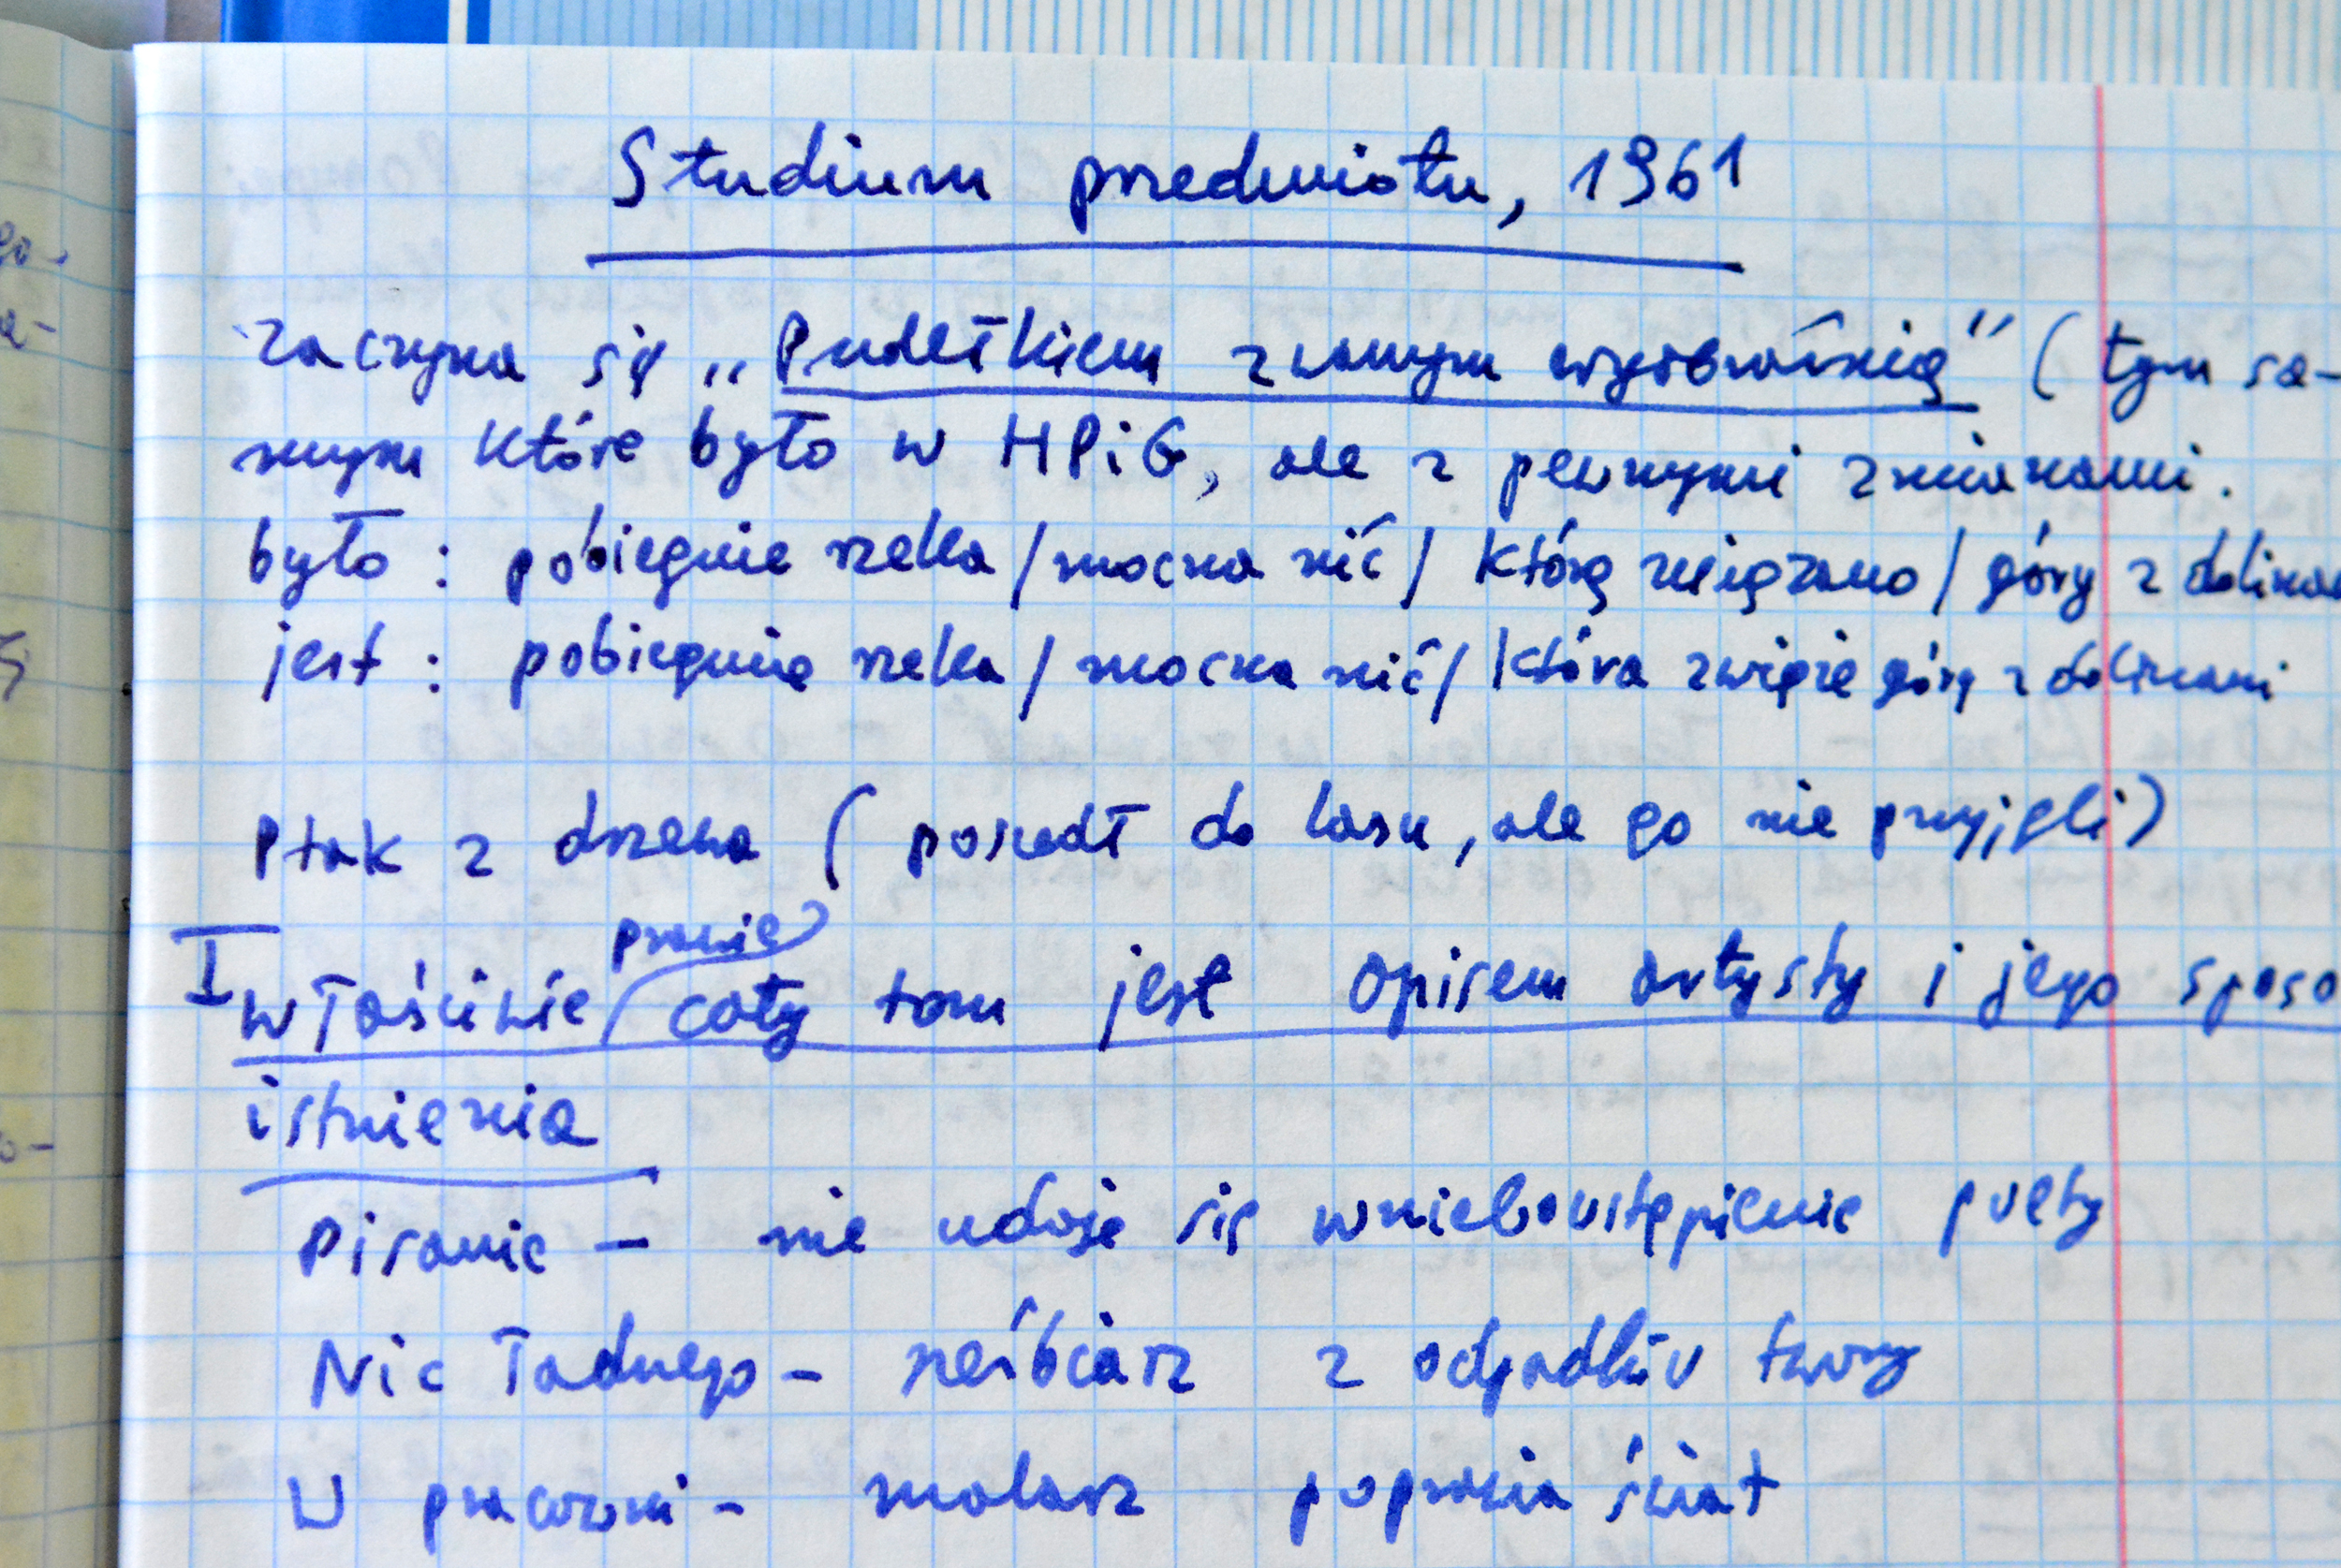 Studium przedmiotu, 1961
zaczyna się „Pudełkiem zwanym wyobraźnią” (tym sa-
mym które było w HPiG, ale z pewnymi zmianami.
było: pobiegnie rzeka / mocna nić / którą związano / góry z dolinam
jest: pobiegnie rzeka / mocna nić / która zwięże góry z dolinami
Ptak z drzewa ( poszedł do lasu, ale go nie przyjęli)
prawie
I właściwie cały tom jest opisem artysty i jego sposo
istnienia
Pisanie – nie udaje się wniebowstąpienie poety
Nic ładnego – rzeźbiarz z odpadków tworzy
W pracowni – malarz poprawia świat